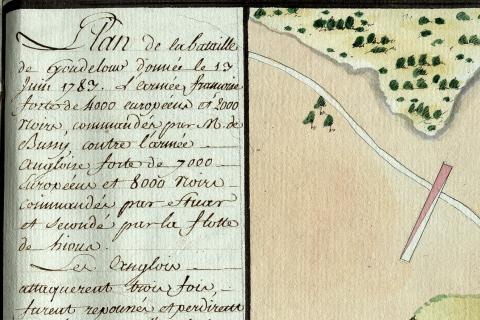 Plan de la bataille
de Goudelour donnée le 13
Juin 1783. L'armée francoise
forte de 4000 européens et 2000
Noirs, commandés par M. de
Bussy, contre l'armée
angloise forte de 7000
Européens et 8000 Noirs
commandés par Stuar
et secondé par la flotte
de hioux.
Les Anglois
attaquerent trois fois,
furent repoussés et perdirent